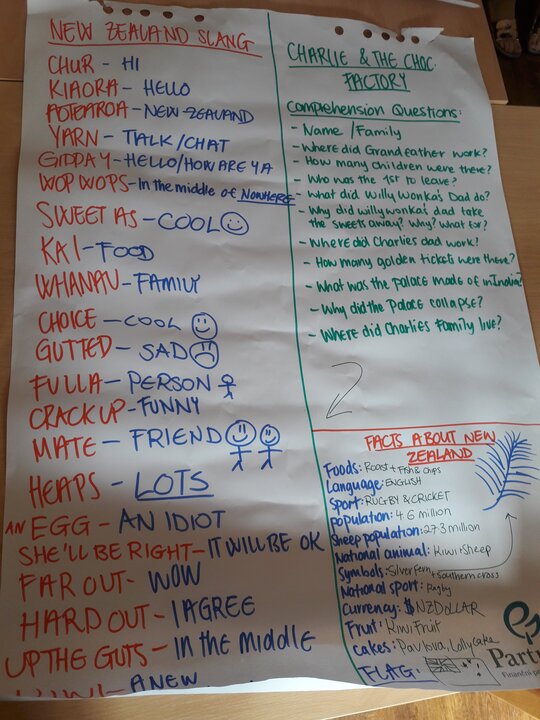 NEW ZEALAND SLANG
CHUR - HI
KIAORA - HELLO
AOTEAROA - NEW ZEALAND
YARN - TALK/CHAT
GIDDAY - HELLO/HOW ARE YA
WOPWOPS - In the middle of NOWHERE
SWEET AS - COOL
KAI - FOOD
WHANAU - FAMILY
CHOICE - COOL
GUTTED - SAD
FULLA - PERSON
CRACK UP - FUNNY
MATE - FRIEND
HEAPS - LOTS
AN EGG - AN IDIOT
SHE'LL BE RIGHT - IT WILL BE OK
FAR OUT - WOW
HARD OUT - I AGREE
UP THE GUTS - In the middle
KIWI - A NEW
CHARLIE & THE CHOC.
FACTORY
Comprehension Questions:
- Name / Family
- Where did Grandfather work?
- How many children were there?
- Who was the 1st to leave?
- What did Willy Wonka's Dad do?
- Why did willy wonka's dad take
the sweets away? Why? What for?
- Where did Charlies dad work?
- How many golden tickets were there?
- What was the palace made of in India?
- Why did the Palace collapse?
- Where did Charlies Family live?
2
FACTS ABOUT NEW
ZEALAND
Foods: Roast + Fish & Chips
Language: ENGLISH
Sport: RUGBY & CRICKET
Population: 4.6 million
Sheep population: 27.3 million
National animal: Kiwi + Sheep
Symbols: Silver Fern + Southern cross
National sport: Rugby
Currency: $NZ DOLLAR
Fruit: Kiwi Fruit
Cakes: Pavlova, Lolly Cake
FLAG:
Partn
Finanční p